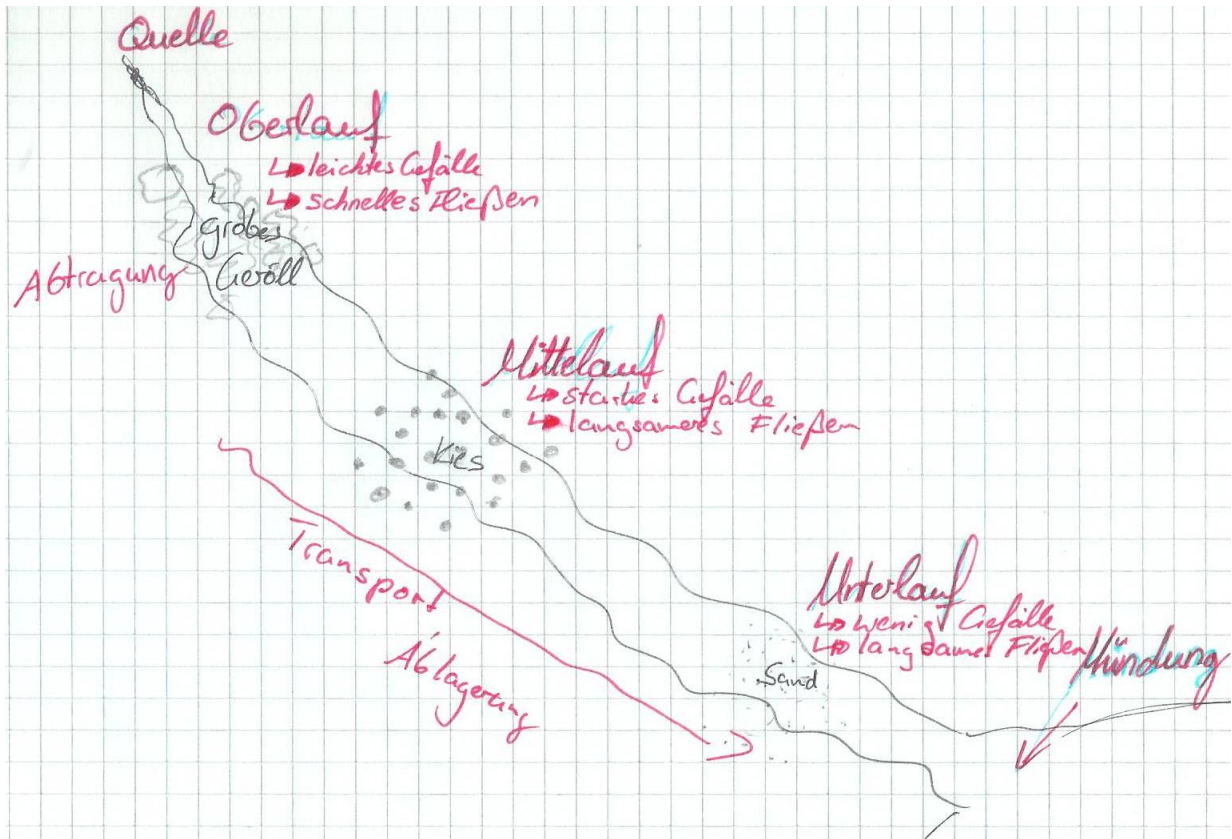 Quelle
Oberlauf
↳ leichtes Gefälle
↳ schnelles Fließen
grobes
Geröll
Abtragung
Mittelauf
↳ starkes Gefälle
↳ langsameres Fließen
Kies
Transport
Ablagerung
Unterlauf
↳ wenig Gefälle
↳ langsames Fließen
Sand
Mündung